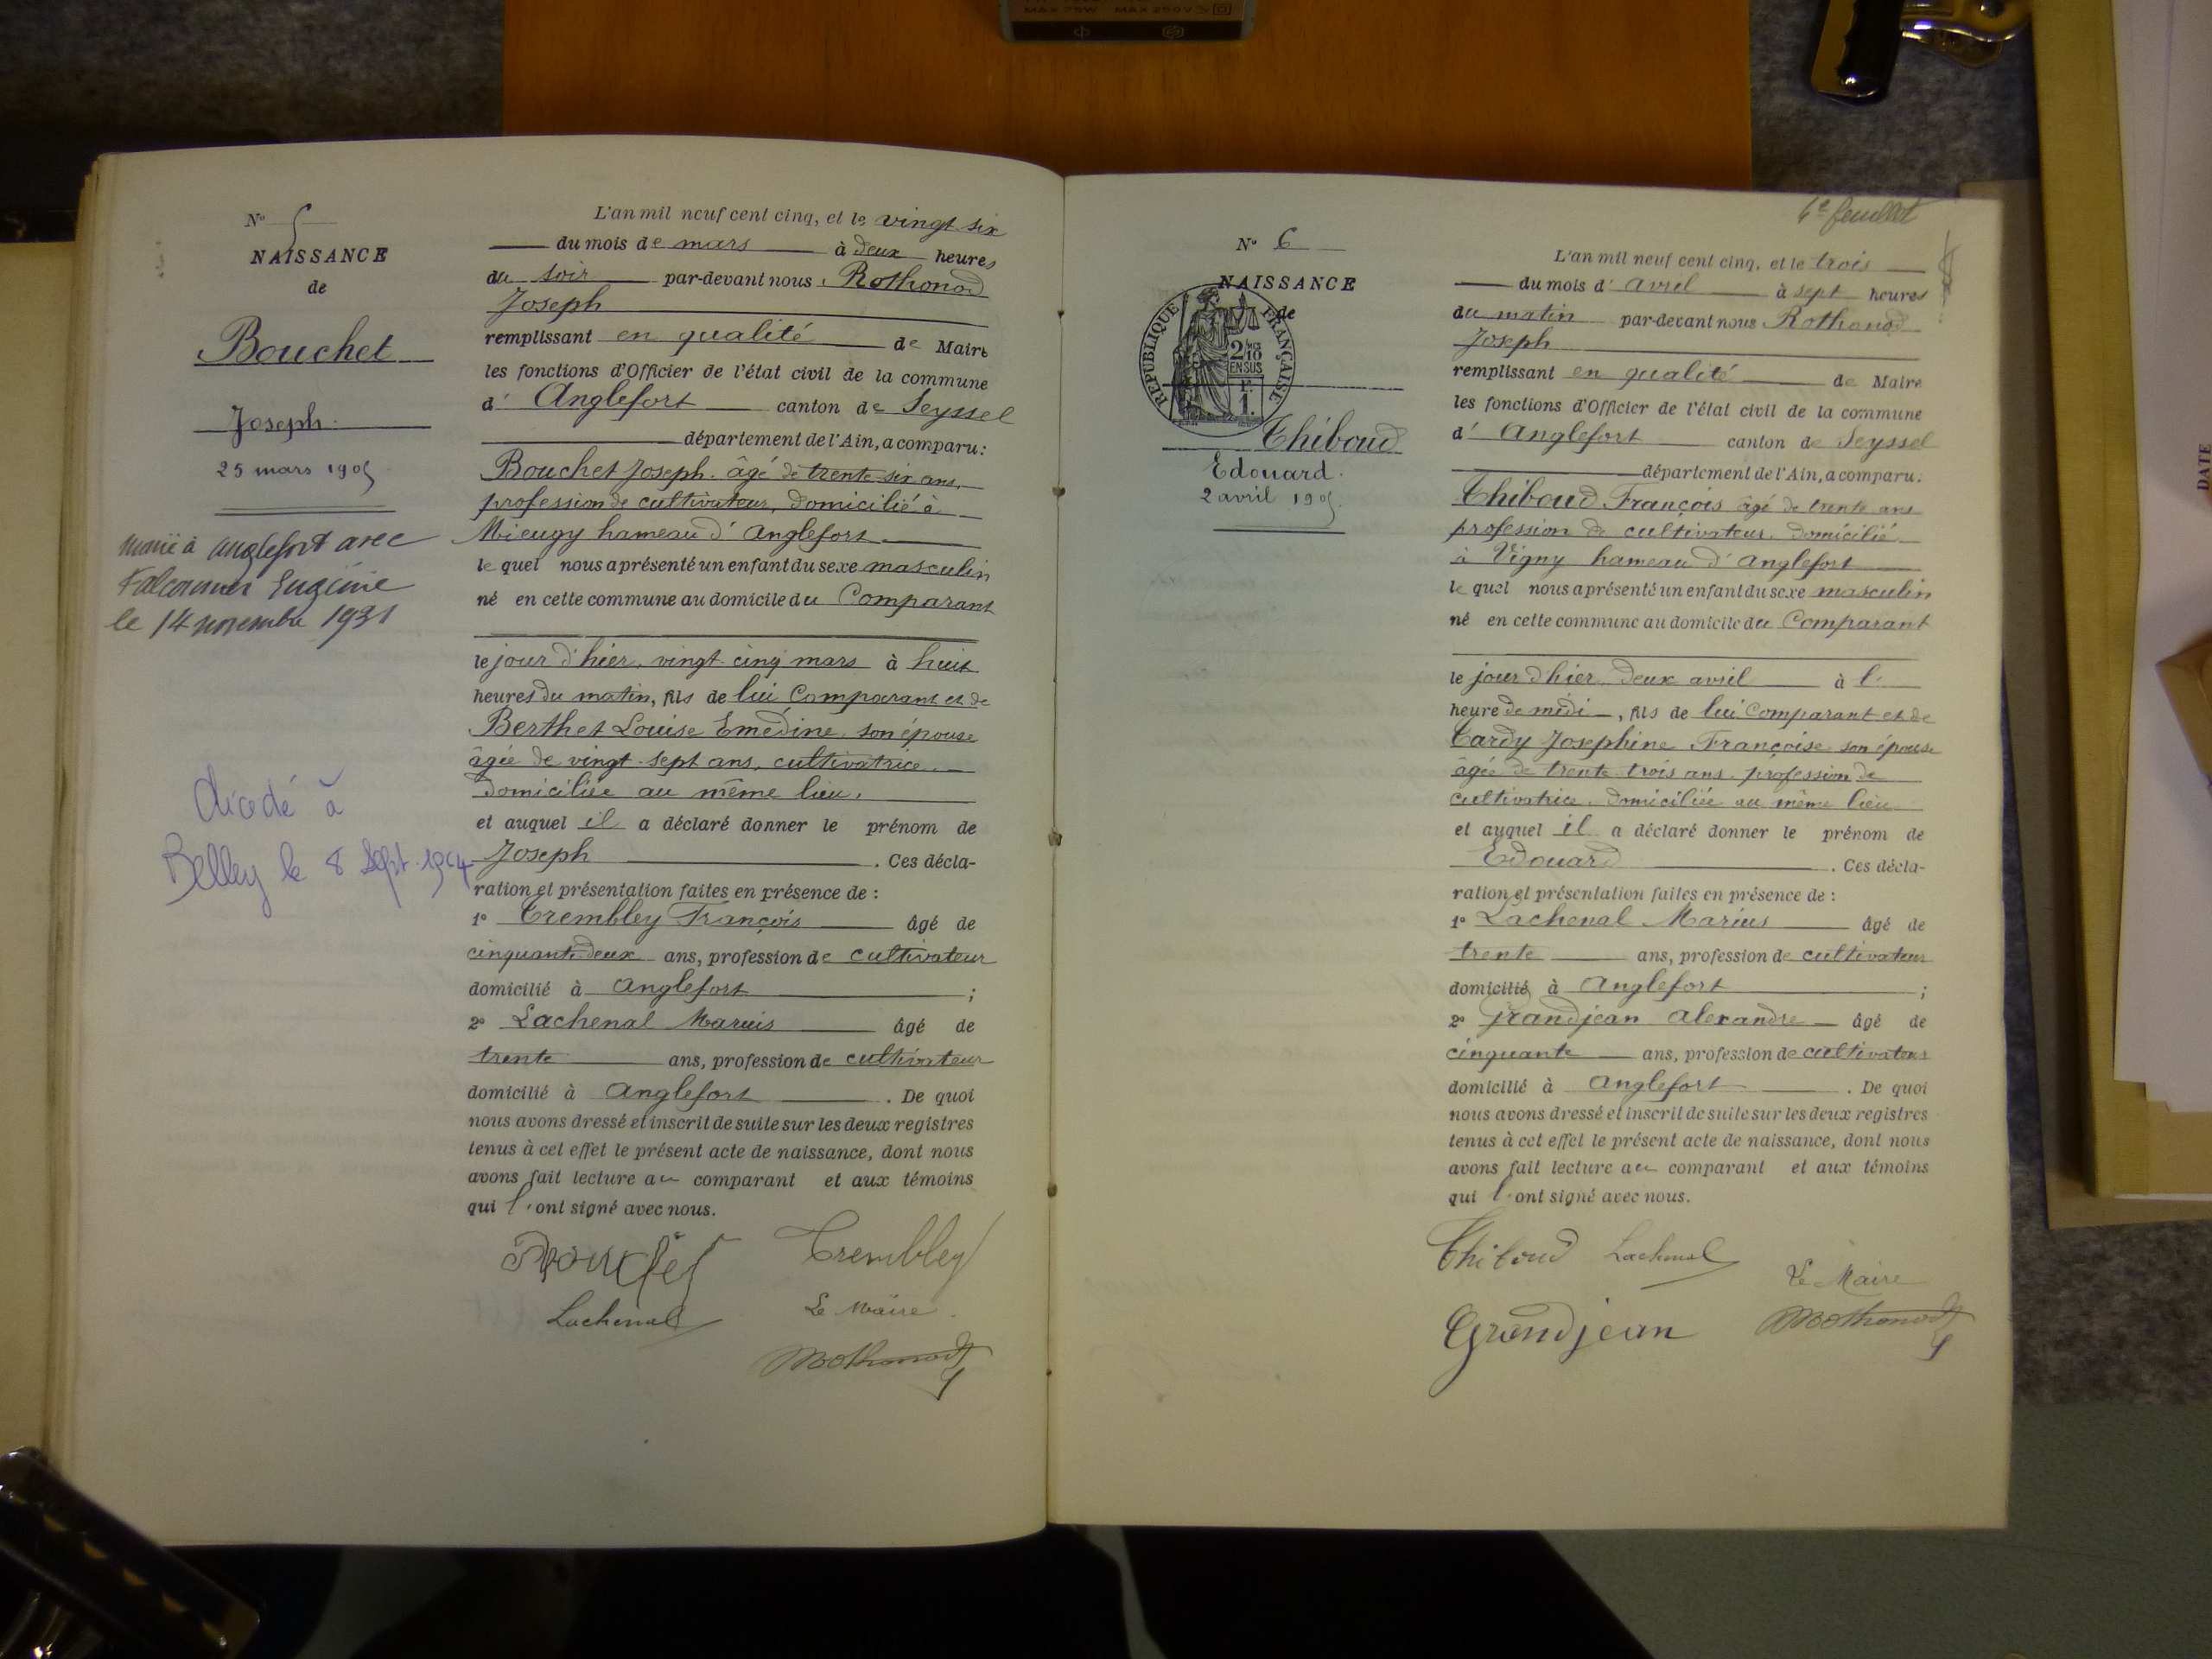 MAX 75W MAX 250V
N° 5
NAISSANCE
de
Bouchet
Joseph
25 mars 1905
marié à Anglefort avec
Eugénie
le 14 novembre 1931
décédé à
Belley le 8 Sept.
L'an mil neuf cent cinq, et le vingt six
du mois de mars à deux heures
du soir par-devant nous, Rothonod
Joseph
remplissant en qualité de Maire
les fonctions d'Officier de l'état civil de la commune
d' Anglefort canton de Seyssel
département de l'Ain, a comparu:
Bouchet Joseph. âgé de trente-six ans,
profession de cultivateur, domicilié à
Mieugy hameau d'Anglefort.
lequel nous a présenté un enfant du sexe masculin
né en cette commune au domicile du Comparant
le jour d'hier, vingt-cinq mars à huit
heures du matin, fils de lui Comparant et de
Berthet Louise Emédine, son épouse
âgée de vingt-sept ans, cultivatrice
domiciliée au même lieu,
et auquel il a déclaré donner le prénom de
Joseph . Ces décla-
ration et présentation faites en présence de :
1° Trembley François âgé de
cinquante-deux ans, profession de cultivateur
domicilié à Anglefort ;
2° Lachenal Marius âgé de
trente ans, profession de cultivateur
domicilié à Anglefort . De quoi
nous avons dressé et inscrit de suite sur les deux registres
tenus à cet effet le présent acte de naissance, dont nous
avons fait lecture au comparant et aux témoins
qui l'ont signé avec nous.
Bouchet Trembley
Lachenal Le Maire
Rothonod
6e feuillet
N° 6
NAISSANCE
de
REPUBLIQUE FRANÇAISE
2/10
EN SUS
1F.
1.
Thiboud
Edouard.
2 avril 1905.
L'an mil neuf cent cinq, et le trois
du mois d'avril à sept heures
du matin par-devant nous Rothonod
Joseph
remplissant en qualité de Maire
les fonctions d'Officier de l'état civil de la commune
d' Anglefort canton de Seyssel
département de l'Ain, a comparu.
Thiboud François âgé de trente ans
profession de cultivateur. domicilié
à Vigny hameau d'Anglefort
lequel nous a présenté un enfant du sexe masculin
né en cette commune au domicile du Comparant
le jour d'hier deux avril à l'
heure de midi, fils de lui Comparant et de
Tardy Josephine Françoise son épouse
âgée de trente trois ans. profession de
cultivatrice. domiciliée au même lieu
et auquel il a déclaré donner le prénom de
Edouard . Ces décla-
ration et présentation faites en présence de :
1° Lachenal Marius âgé de
trente ans, profession de cultivateur
domicilié à Anglefort ;
2° Grandjean Alexandre âgé de
cinquante ans, profession de cultivateur
domicilié à Anglefort . De quoi
nous avons dressé et inscrit de suite sur les deux registres
tenus à cet effet le présent acte de naissance, dont nous
avons fait lecture au comparant et aux témoins
qui l'ont signé avec nous.
Thiboud Lachenal
Le Maire
Grandjean Rothonod
DATE